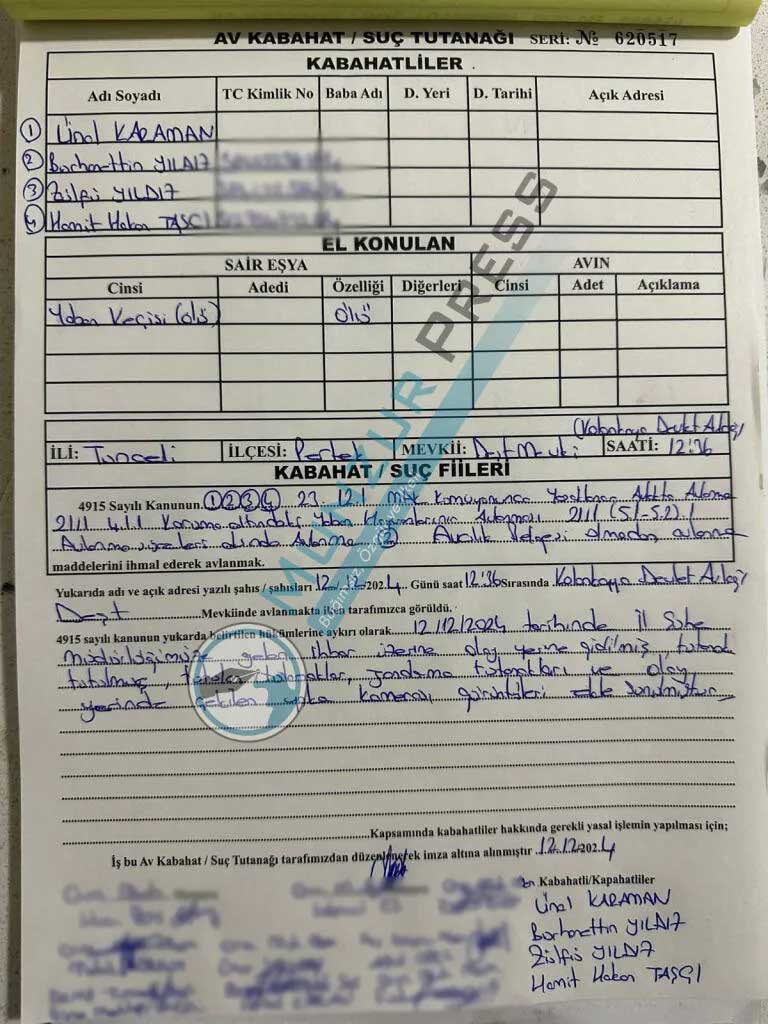 AV KABAHAT / SUÇ TUTANAĞI SERİ: № 620517
KABAHATLİLER
Adı Soyadı TC Kimlik No Baba Adı D. Yeri D. Tarihi Açık Adresi
1 Ünal KARAMAN
2 Borhanettin YILDIZ
3 Zilfü YILDIZ
4 Hamit Hakan TAŞÇI
EL KONULAN
SAİR EŞYA AVIN
Cinsi Adedi Özelliği Diğerleri Cinsi Adet Açıklama
Yaban Keçisi (ölü) ölü
(Kolankaya Devlet Avlağı
İLİ: Tunceli İLÇESİ: Pertek MEVKİİ: Dest Mevki SAATİ: 12:36
KABAHAT / SUÇ FİİLERİ
4915 Sayılı Kanunun 1 2 3 4 23. 12.1 MAK Komisyonunca Avlama
21/1 4.1.1 Koruma altındaki Yaban Hayvanlarının Avlanması 21/1 (5.1-5.2) /
Avlanma altında Avlanma 2 Avcılık belgesi olmadan avlanma
maddelerini ihmal ederek avlanmak.
Yukarıda adı ve açık adresi yazılı şahıs / şahısları 12/12/2024. Günü saat 12:36 Sırasında Kolankaya Devlet Avlağı
Dest Mevkiinde avlanmakta iken tarafımızca görüldü.
4915 sayılı kanunun yukarda belirtilen hükümlerine aykırı olarak 12/12/2024 tarihinde İl Şube
Müdürlüğümüze gelen ihbar üzerine olay yerine gidilmiş, tutanak
tutulmuş, jandarma tutanakları ve olay
yerinde çekilen kamerası görüntüleri
Kapsamında kabahatliler hakkında gerekli yasal işlemin yapılması için;
İş bu Av Kabahat / Suç Tutanağı tarafımızdan düzenlenerek imza altına alınmıştır 12.12.2024
Kabahatli/Kapahatliler
Ünal KARAMAN
Borhanettin YILDIZ
Zilfü YILDIZ
Hamit Hakan TAŞÇI
MUNZUR PRESS